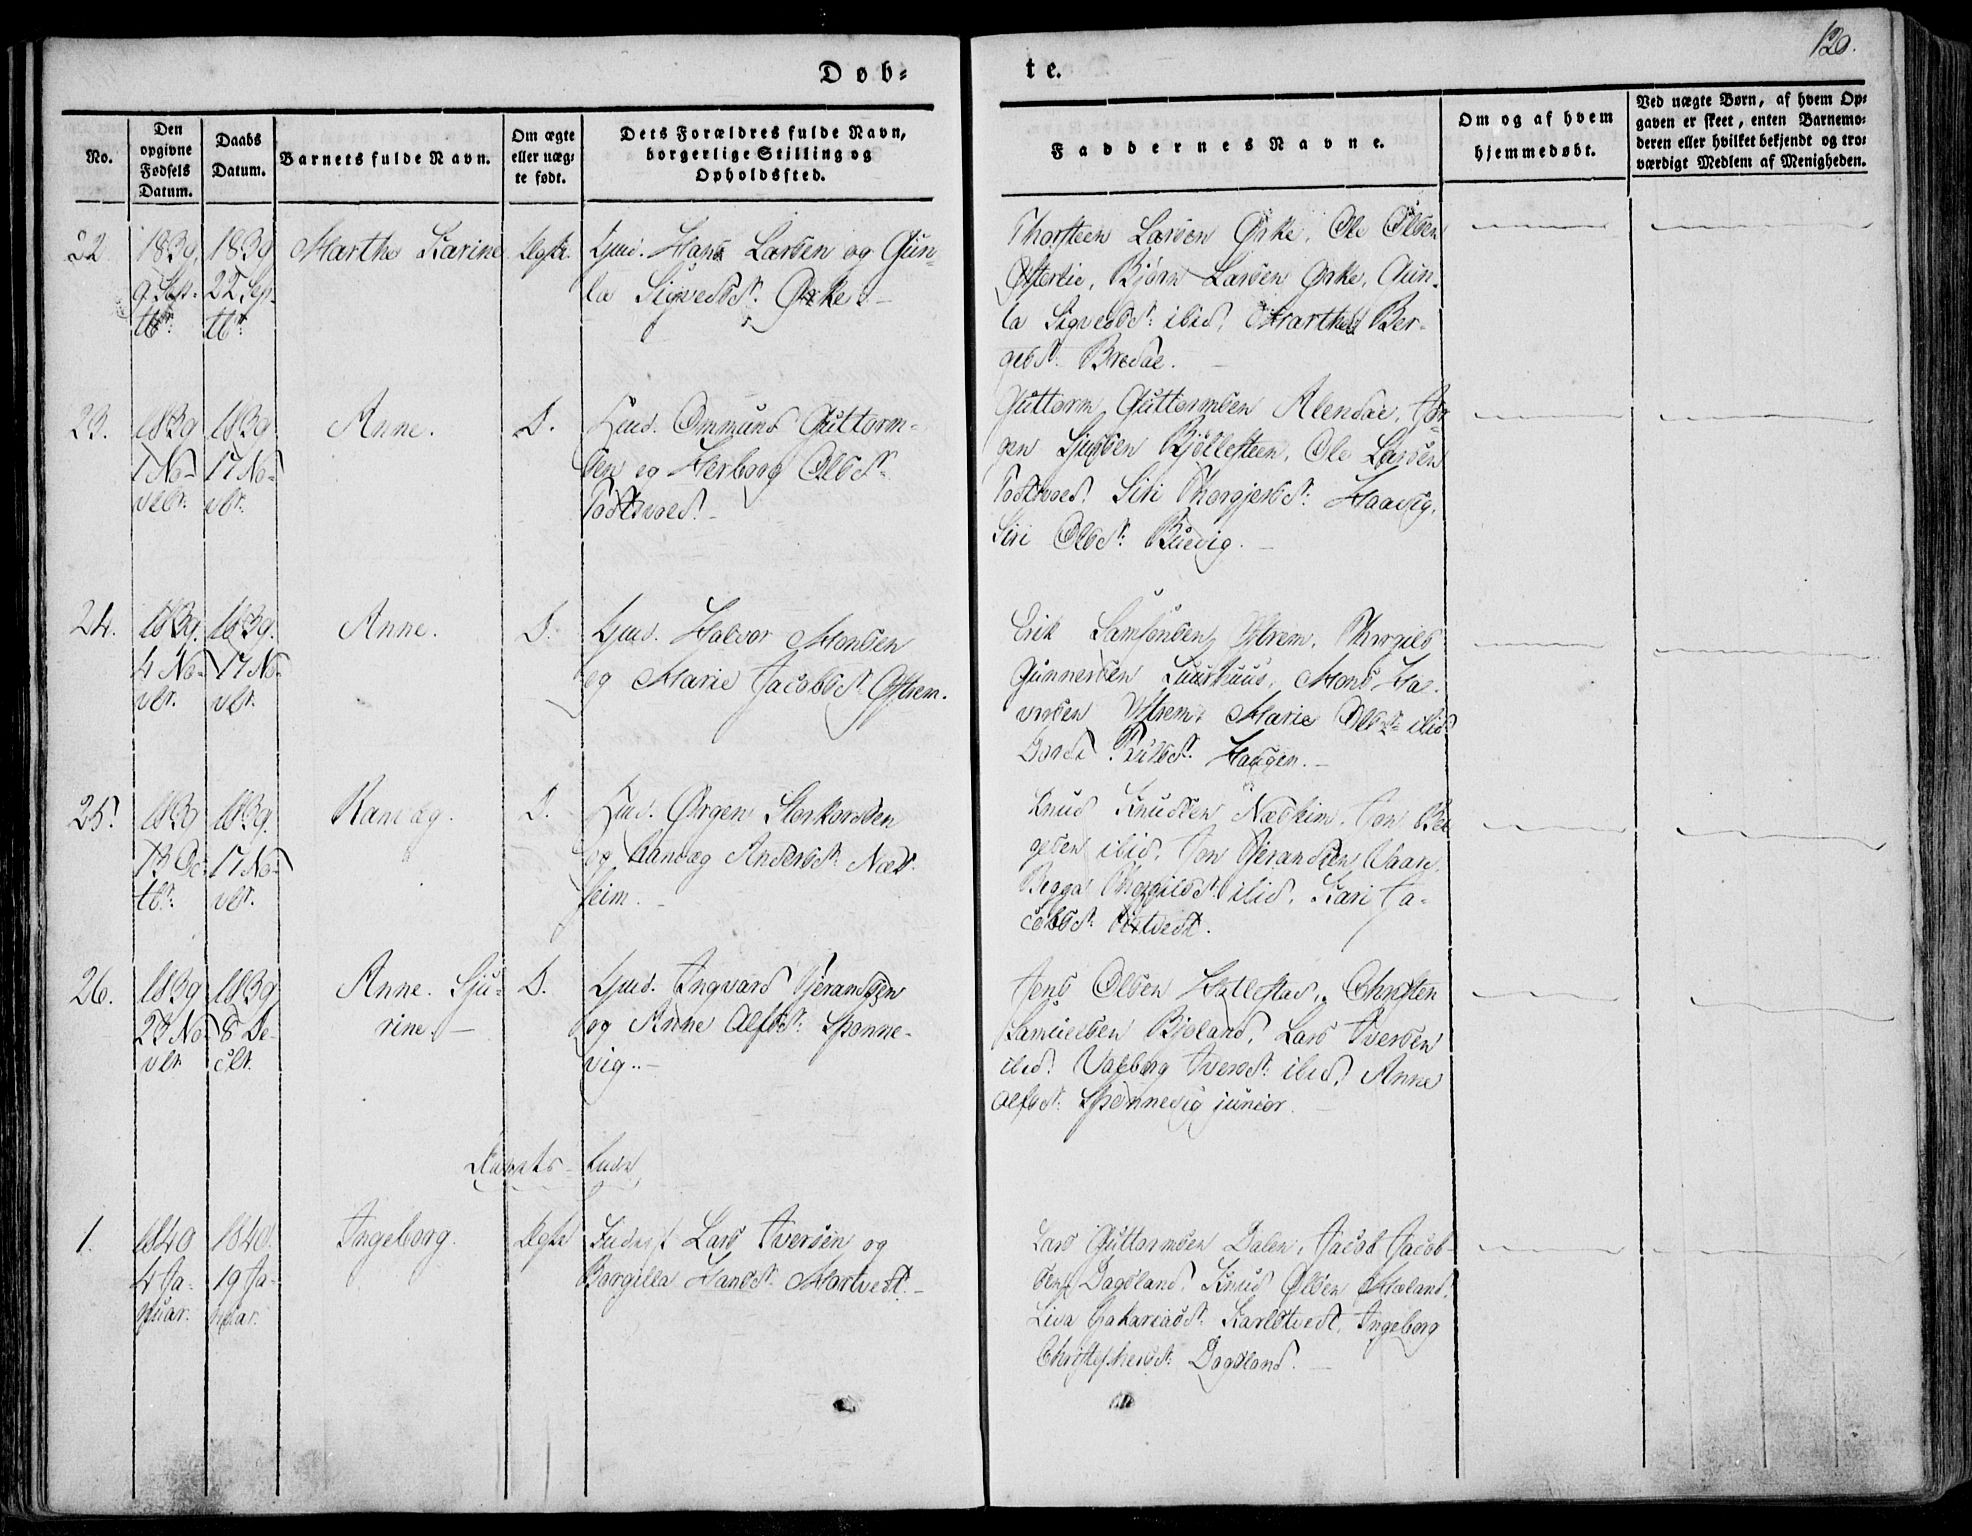 120.
Døb-
te.
No.
Den
opgivne
Fødsels
Datum.
Daabs
Datum.
Barnets fulde Navn.
Om ægte
eller uæg-
te født.
Dets Forældres fulde Navn,
borgerlige Stilling og
Opholdssted.
Faddernes Navne.
Om og af hvem
hjemmedøbt.
Ved uægte Børn, af hvem Op-
gaven er skeet, enten Barnemo-
deren eller hvilket bekjendt og tro-
værdigt Medlem af Menigheden.
22.
1839.
9 Sep-
tbr.
1839
22 Sep-
tbr.
Marthe Karine
Ægte.
Gmd. Hans Larsen og Gun-
la Sigvedsdt. Ørke.
Thorsteen Larsen Ørke, Ole Olsen
Østertie, Bjørn Larsen Ørke, Gun-
la Sigvedsdt: ibid, Marthe Ber-
gesdt. Bredal.
23.
1839
1 No-
vbr.
1839
17 No-
vbr.
Anne.
D.
Gmd. Ommund Guttorm-
sen og Herborg Olsdt.
Guttorm Guttormsen Alendal,
sen Bjøllesteen, Ole Larsen
Siri Thorgjersdt: Haavig,
Siri Olsdt: Buevig.
24.
1839.
4 No-
vbr.
1839.
17 No-
vbr.
Anne.
D.
Gmd. Halvor Monsen
og Marie Jacobsdt. Østrem.
Erik Samsonsen Østrem, Thorgils
Gunnersen Mons Ha-
vorsen Østrem, Marie Olsdt: ibid
Haugen.
25.
1839
13 Oc-
tbr.
1839.
17 No-
vbr.
Ranvæg.
D.
Gmd. Ørgen Storkorsen
og Ranvæg Andersdt: Næs-
heim.
Knud Knudsen Næsheim, Jon Bør-
gesen ibid, Jon Tjerandsen Vaare,
ibid, Kari Ja-
cobsdt:
26.
1839
23 No-
vbr.
1839
8 De-
cbr.
Anne. Sju-
rine.
D.
Gmd. Ingvard Tjerandsen
og Anne Alfsdt: Spanne-
vig.
Jens Olsen Hallestad, Christen
Samuelsen Bjoland, Lars Iversen
ibid. Valborg Iversdt: ibid, Anne
Alfsdt: Spannevig junior.
1.
1840
4 Ja-
nuar.
1840.
19 Ja-
nuar.
Ingeborg.
Ægte
Inderst Lars Iversen og
Borgilla Hansdt. Mortvedt.
Lars Guttormsen Dalen, Jacob Jacob-
sen Dagsland, Knud Olsen Mæland,
Lisa Zakariasdt: Karlstvedt, Ingeborg
Christophersdt: Dagsland.